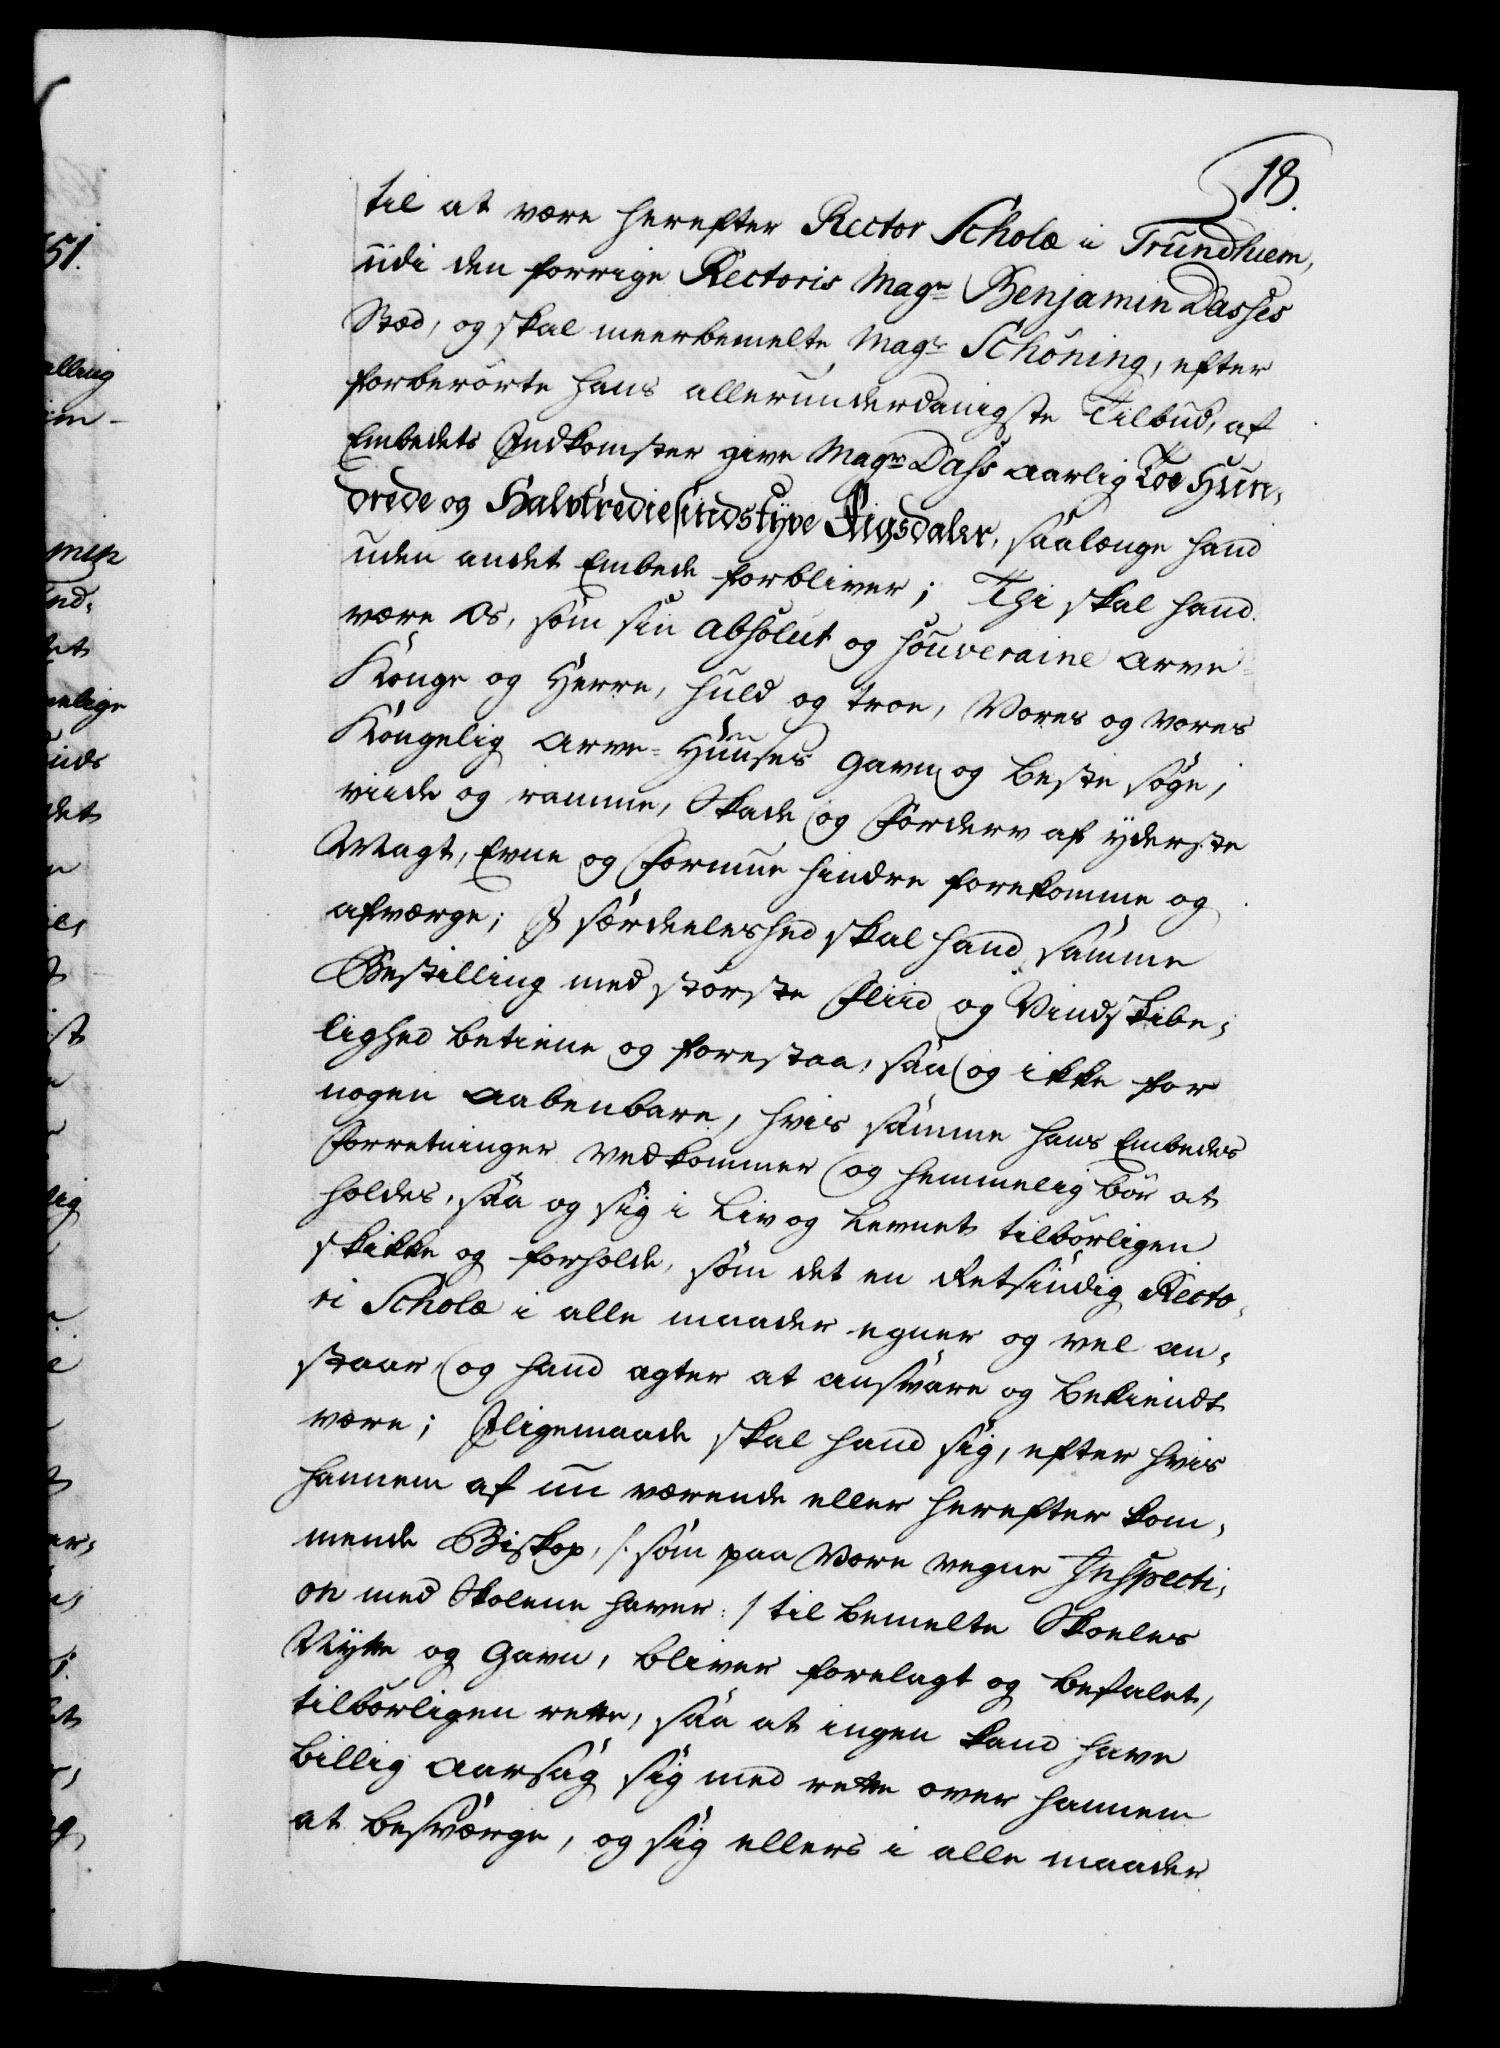 18.
til at være herefter Rector Scholæ i Trundhiem,
udi den forrige Rectoris Magr Benjamin Dasses
Stæd, og skal meerbemelte Magr Schöning, efter
forberörte hans allerunderdanigste Tilbud, af
Embedets Indkomster give Magr Dass aarlig Toe Hun-
drede og Halvtrediesindstyve Rigsdaler, saalænge hand
uden andet Embede forbliver; Thi skal hand
være Os, som sin absolut og souveraine Arve-
Konge og Herre, huld og troe, Vores og vores
Kongelig Arve-Huuses Gavn og beste söge,
viide og ramme, Skade og Forderv af yderste
Magt, Evne og Formue hindre forekomme og
afværge; I særdeleshed skal hand samme
Bestilling med störste Fliid og Vindskibe-
lighed betiene og forestaa, saa og ikke for
nogen aabenbare, hvis samme hans Embedes
Forretninger vedkommer og hemmelig bör at
holdes, saa og sig i Liv og Levnet tilbörligen
skikke og forholde, som det en Retsindig Recto-
ri Scholæ i alle maader egner og vel an-
staar, og hand agter at ansvare og bekiendt
være; Iligemaade skal hand sig, efter hvis
hannem af nu værende eller herefter kom-
mende Biskop, /: som paa Vore vegne Inspecti-
on med Skolene haver :/ til bemelte Skoeles
Nytte og Gavn, bliver forelagt og befalet,
tilbörligen rette, saa at ingen kand have
billig Aarsag sig med rette over hannem
at besværge, og sig ellers i alle maader
51.
alling